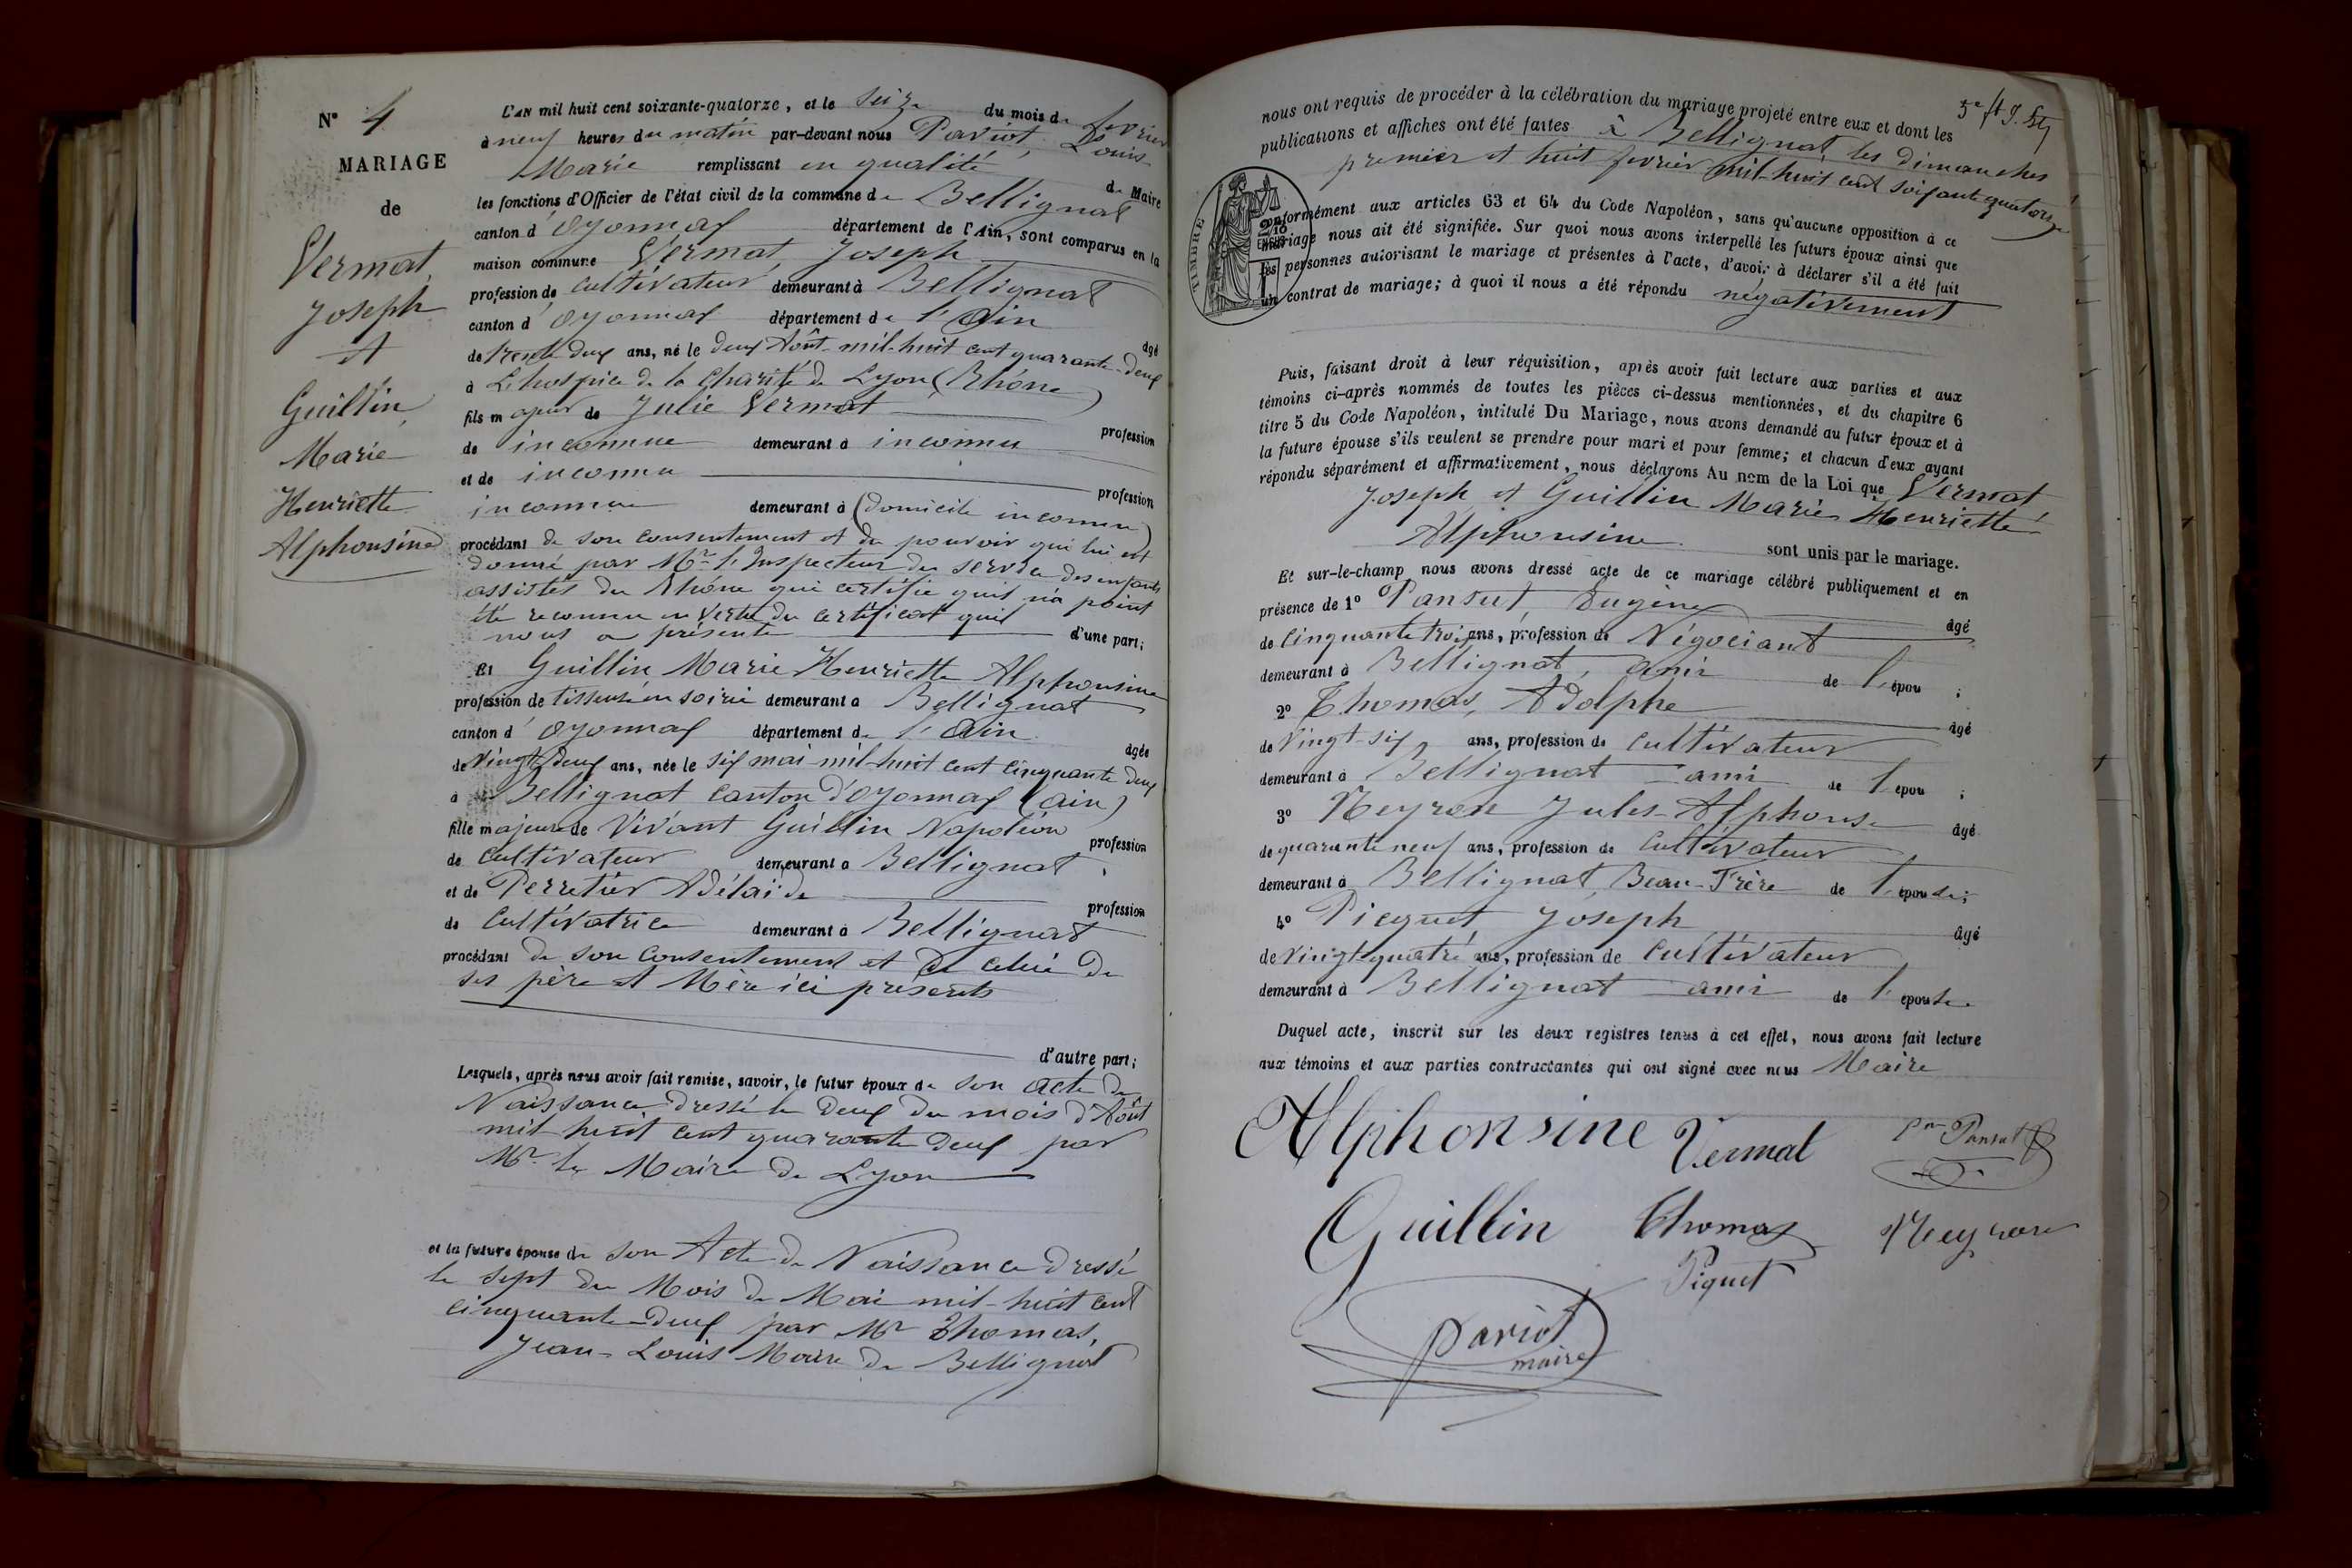 N° 4
MARIAGE
de
Vermat,
Joseph
et
Guillin,
Marie
Henriette
Alphonsine
L'AN mil huit cent soixante-quatorze, et le seize du mois de fevrier
à neuf heures du matin par-devant nous Pariot, Louis
Marie remplissant en qualité de Maire
les fonctions d'Officier de l'état civil de la commune de Bellignat
canton d'Oyonnax département de l'Ain, sont comparus en la
maison commune Vermat, Joseph
profession de cultivateur demeurant à Bellignat
canton d'Oyonnax département de l'Ain âgé
de trente deux ans, né le deux Août mil-huit cent quarante-deux
à L'hospice de la Charité de Lyon (Rhône)
fils majeur de Julie Vermat profession
de inconnue demeurant à inconnu
et de inconnu profession
inconnue demeurant à (domicile inconnu)
procédant de son consentement et du pouvoir qui lui est
donné par Mr l'Inspecteur du service des enfants
assistés du Rhône qui certifie qu'il n'a point
été reconnu en vertu du certificat qu'il
nous a présenté d'une part;
Et Guillin, Marie Henriette Alphonsine
profession de tisseuse en soirie demeurant à Bellignat
canton d'Oyonnax département de l'Ain âgée
de vingt deux ans, née le six mai mil-huit cent cinquante deux
à Bellignat canton d'Oyonnax (Ain)
fille majeure de Vivant Guillin Napoléon profession
de cultivateur demeurant à Bellignat,
et de Perretier Adélaïde profession
de Cultivatrice demeurant à Bellignat
procédant de son consentement et de celui de
ses père et Mère ici présents
d'autre part;
Lesquels, après nous avoir fait remise, savoir, le futur époux de son acte de
Naissance dressé le deux du mois d'Août
mil huit cent quarante deux par
Mr le Maire de Lyon
et la future épouse de son Acte de Naissance dressé
le sept du Mois de Mai mil-huit cent
cinquante-deux par Mr Thomas,
Jean-Louis Maire de Bellignat
nous ont requis de procéder à la célébration du mariage projeté entre eux et dont les
publications et affiches ont été faites à Bellignat, les dimanches
premier et huit fevrier mil-huit cent soixante quatorze
TIMBRE
conformément aux articles 63 et 64 du Code Napoléon, sans qu'aucune opposition à ce
mariage nous ait été signifiée. Sur quoi nous avons interpellé les futurs époux ainsi que
les personnes autorisant le mariage et présentes à l'acte, d'avoir à déclarer s'il a été fait
un contrat de mariage; à quoi il nous a été répondu négativement
Puis, faisant droit à leur réquisition, après avoir fait lecture aux parties et aux
témoins ci-après nommés de toutes les pièces ci-dessus mentionnées, et du chapitre 6
titre 5 du Code Napoléon, intitulé Du Mariage, nous avons demandé au futur époux et à
la future épouse s'ils veulent se prendre pour mari et pour femme; et chacun d'eux ayant
répondu séparément et affirmativement, nous déclarons Au nom de la Loi que Vermat
Joseph et Guillin Marie Henriette
Alphonsine sont unis par le mariage.
Et sur-le-champ nous avons dressé acte de ce mariage célébré publiquement et en
présence de 1° Pansut, Eugène âgé
de Cinquante trois ans, profession de Négociant
demeurant à Bellignat, ami de l'épou ;
2° Thomas, Adolphe âgé
de vingt-six ans, profession de cultivateur
demeurant à Bellignat ami de l'épou ;
3° Neyron Jules-Alphonse âgé
de quarante neuf ans, profession de Cultivateur
demeurant à Bellignat, Beau-Frère de l'épouse;
4° Picquet Joseph âgé
de vingt-quatre ans, profession de Cultivateur
demeurant à Bellignat ami de l'épouse
Duquel acte, inscrit sur les deux registres tenus à cet effet, nous avons fait lecture
aux témoins et aux parties contractantes qui ont signé avec nous Maire
Alphonsine Vermat Pansut
Guillin Thomas Neyron
Piquet
Pariot
maire